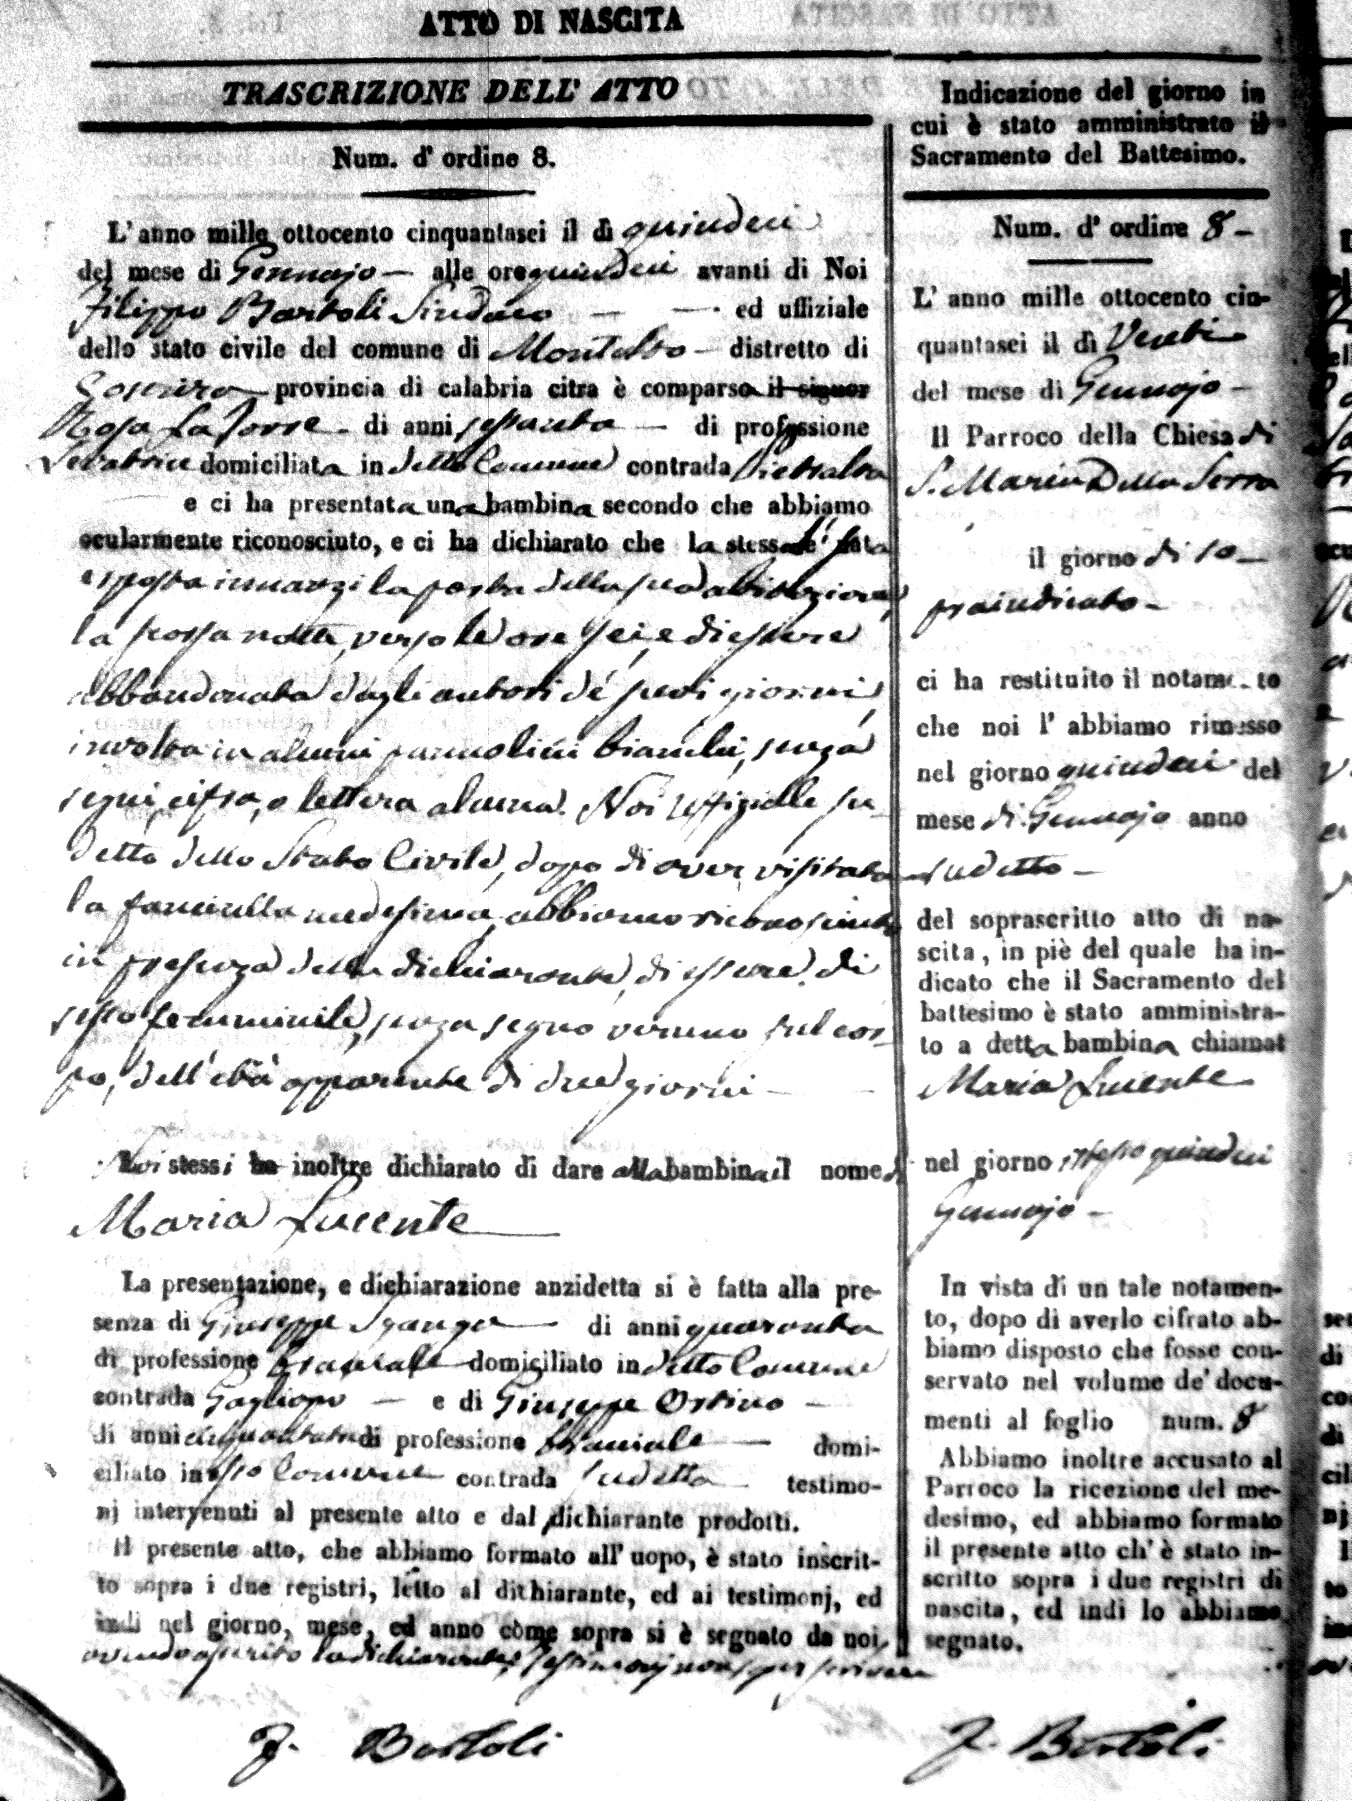 ATTO DI NASCITA
TRASCRIZIONE DELL' ATTO
Num. d' ordine 8.
L' anno mille ottocento cinquantasei il dì quindeci
del mese di Gennajo — alle ore quindeci avanti di Noi
Filippo Bartoli Sindaco — — ed uffiziale
dello stato civile del comune di Montalto — distretto di
Cosenza provincia di calabria citra è comparsa il signor
Rosa La Torre — di anni sessanta — di professione
Levatrice domiciliata in detto Comune contrada Pietralta
e ci ha presentata una bambina secondo che abbiamo
ocularmente riconosciuto, e ci ha dichiarato che la stessa è stata
esposta innanzi la porta della sua abitazione,
la scorsa notte, verso le ore sei, e di essere
abbandonata dagli autori de' suoi giorni,
involta in alcuni pannolini bianchi, senza
segni, cifra, o lettera alcuna. Noi uffizialle su-
detto dello Stato Civile, dopo di aver visitata
la fanciulla medesima, abbiamo riconosciuto
in presenza della dichiarante, di essere di
sesso femminile, senza segno veruno sul cor-
po, dell' età apparente di due giorni —
Noi stessi ha inoltre dichiarato di dare alla bambina il nome di
Maria Lucente
La presentazione, e dichiarazione anzidetta si è fatta alla pre-
senza di Giuseppe Sganga — di anni quaranta
di professione Bracciale domiciliato in detto Comune
contrada Gagliopo — e di Giuseppe Ortino —
di anni di professione Bracciale — domi-
ciliato in esso Comune contrada sudetta testimo-
nj intervenuti al presente atto e dal dichiarante prodotti.
Il presente atto, che abbiamo formato all' uopo, è stato inscrit-
to sopra i due registri, letto al dichiarante, ed ai testimonj, ed
indi nel giorno, mese, ed anno come sopra si è segnato da noi,
avendo asserito la dichiarante, e testimonj non saper scrivere
F. Bartoli
Indicazione del giorno in
cui è stato amministrato il
Sacramento del Battesimo.
Num. d' ordine 8 —
L' anno mille ottocento cin-
quantasei il dì Venti
del mese di Gennajo —
Il Parroco della Chiesa di
S. Maria Della Serra
il giorno di so-
praindicato —
ci ha restituito il notamento
che noi l' abbiamo rimesso
nel giorno quindeci del
mese di Gennajo anno
sudetto —
del soprascritto atto di na-
scita, in piè del quale ha in-
dicato che il Sacramento del
battesimo è stato amministra-
to a detta bambina chiamat
Maria Lucente
nel giorno stesso quindeci
Gennajo —
In vista di un tale notamen-
to, dopo di averlo cifrato ab-
biamo disposto che fosse con-
servato nel volume de' docu-
menti al foglio num. 8
Abbiamo inoltre accusato al
Parroco la ricezione del me-
desimo, ed abbiamo formato
il presente atto ch' è stato in-
scritto sopra i due registri di
nascita, ed indi lo abbiamo
segnato.
F. Bartoli